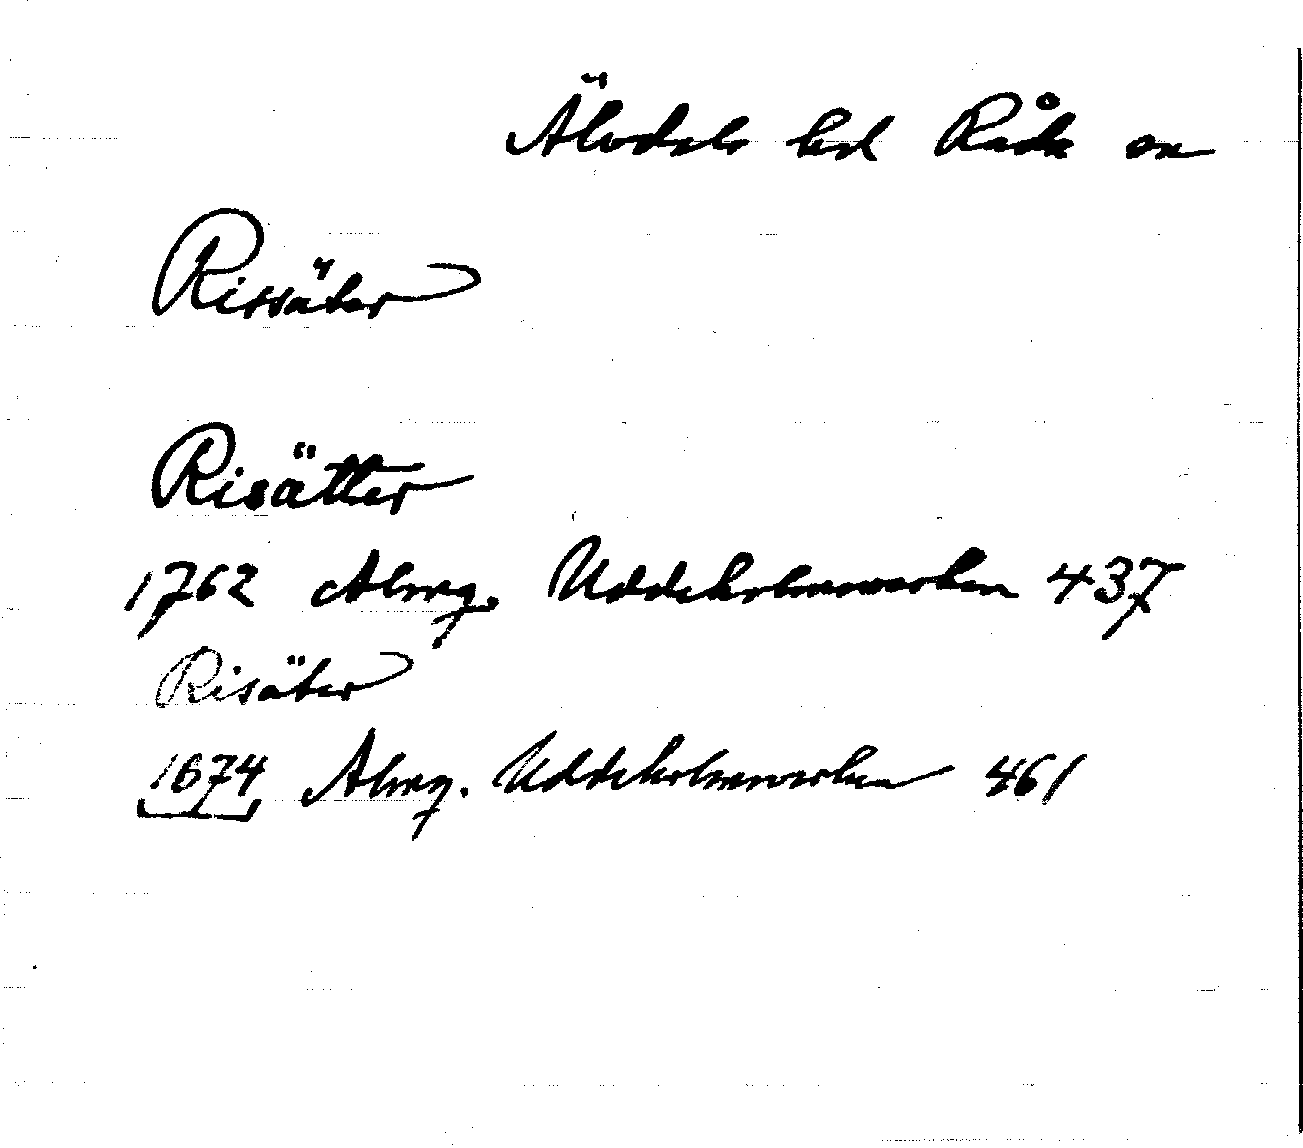 Älvdals hd Råda sn
Rissäter
Risätter
1762 Almq. Uddeholmsverken 437
Risäter
1674 Almq. Uddeholmsverken 461